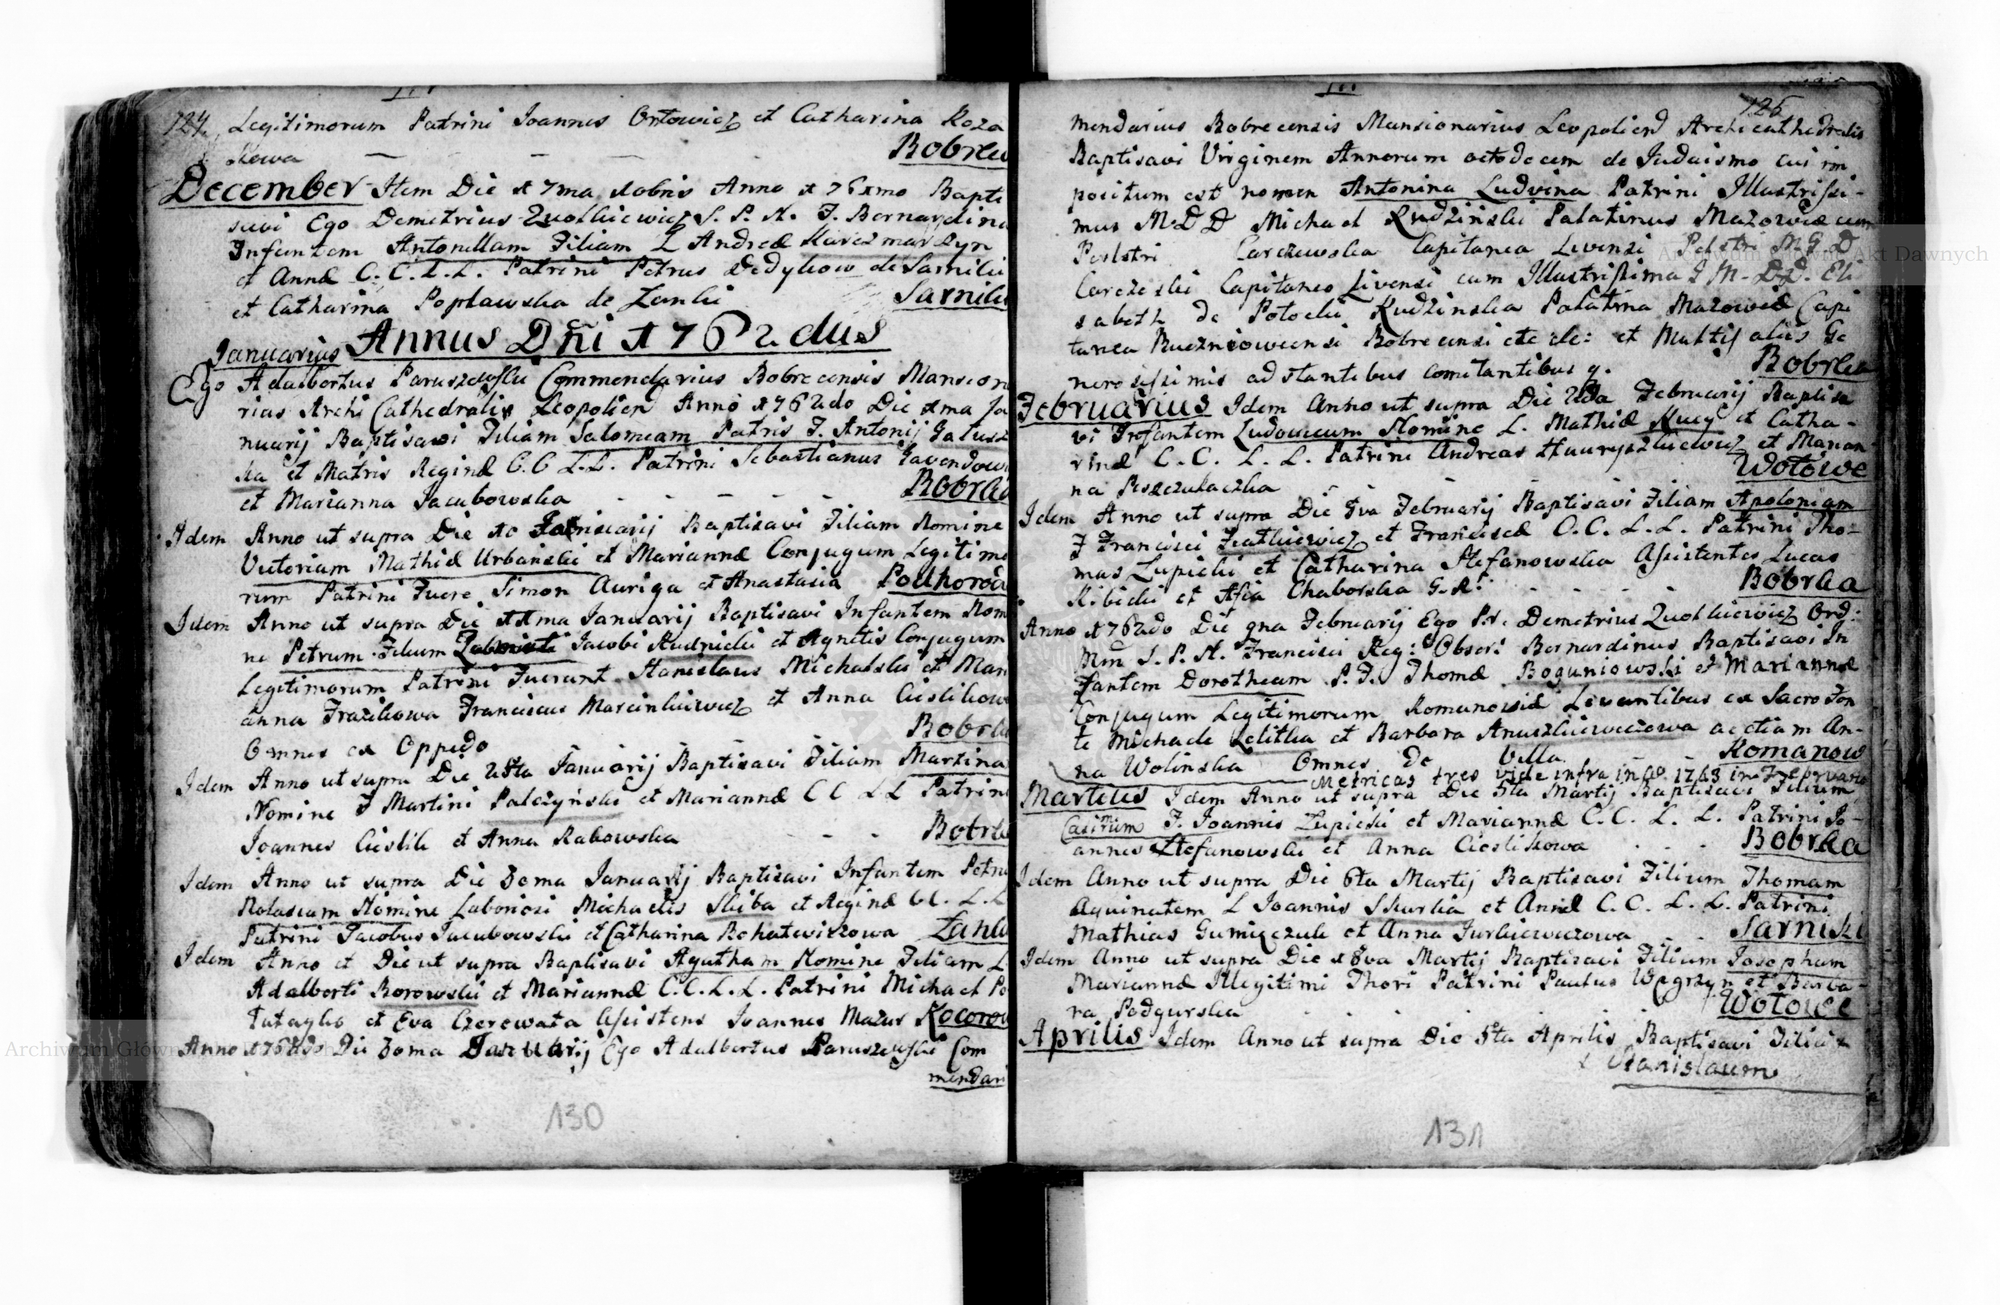 124.
Legitimorum Patrini Joannes Ortowicz et Catharina Koza
kowa Bobrka
December Item Die 17ma Xobris Anno 1761mo Bapti
savi Ego Demetrius S. P. N. F. Bernardinus
Infantem Antonillam Filiam L Andreæ
et Annæ C. C. L. L. Patrini Petrus Dedykow de Sarniki
et Catharina Popławska de Zanki Sarniki
Annus Dñi 1762dus
Januarius
Ego Adalbertus Paruszewski Commendarius Bobrecensis Mansion
rius Archi Cathedralis Leopolien Anno 1762do Die 1ma Ja
nuarij Baptisavi Filiam Salomeam Patris F. Antonij
ka et Matris Reginæ C. C L. L. Patrini Sebastianus
et Marianna Jacubowska Bobrka
Idem Anno ut supra Die 10 Januarij Baptisavi Filiam Nomine
Victoriam Mathiæ Urbański et Mariannæ Conjugum Legitimo
rum Patrini Fuere Simon Auriga et Anastasia
Idem Anno ut supra Die 11ma Januarij Baptisavi Infantem Nom
ne Petrum Filium Jacobi Rudnicki et Agnetis Conjugum
Legitimorum Patrini Fuerunt Stanislaus Michalski et Mari
anna Frazikowa Franciscus Marcinkiewicz et Anna Cieslikowa
Omnes ex Oppido Bobrka
Idem Anno ut supra Die Januarij Baptisavi Filiam Martina
Nomine F Martini Palczyński et Mariannæ C C L L Patrini
Joannes Cieslik et Anna Rabowska Bobrka
Idem Anno ut supra Die 30ma Januarij Baptisavi Infantem Petru
Nolascum Nomine Laboriosi Michaelis Skiba et Reginæ CC. L. L
Patrini Jacobus Jacubowski et Catharina Zanki
Idem Anno et Die ut supra Baptisavi Agatham Nomine Filiam L
Adalberti Borowski et Mariannæ C. C. L. L. Patrini Michael Po
tutaylo et Eva Czerewata Assistens Joannes Mazur
Anno 1762do Die 30ma Januarij Ego Adalbertus Paruszewski Com
mendari
130
125
mendarius Bobrecensis Mansionarius Leopolien Archicathedralis
Baptisavi Virginem Annorum octodecem de Judaismo cui im
positum est nomen Antonina Ludvina Patrini Illustrissi-
mus M. D D Michael Rudziński Palatinus Mazowiæ cum
Carczewska Capitanea Livensi M. G. D
Carczeski Capitaneo Livensi cum Illustrissima J M. D. D. Eli
sabeth de Potocki Rudzinska Palatina Mazowiæ Capi
tanea Bobrecensi etc etc: et Multis aliis Ge
nerosissimis adstantibus comitantibus q. Bobrka
Februarius Idem Anno ut supra Die 2da Februarij Baptisa
vi Infantem Ludovicum Nomine L. Mathiæ et Catha-
rinæ C. C. L. L. Patrini Andreas et Marian
na Wołowe
Idem Anno ut supra Die Februarij Baptisavi Filiam Apoloniam
F Francisci et Franciscæ C. C. L. L. Patrini Tho-
mas Zupicki et Catharina Stefanowska Assistentes Lucas
Ribicki et Chaborska G. R. Bobrka
Anno 1762do Die 9na Februarij Ego Pr. Demetrius Ord:
Min S. P. N. Francisci Reg: Obser: Bernardinus Baptisavi In
fantem Dorotheam P. F. Thomæ Boguniowski et Mariannæ
Conjugum Legitimorum Romanowiæ Levantibus ex Sacro Fon
te Michaele Letitka et Barbara ac etiam An-
na Wolinska Omnes De Villa Romanow
Metricas tres vide infra in Ao. 1763 in Februario
Martius Idem Anno ut supra Die 5ta Martij Baptisavi Filium
Casimirum F. Joannis Zupicki et Mariannæ C. C. L. L. Patrini Jo-
annes Stefanowski et Anna Cieslikowa Bobrka
Idem Anno ut supra Die 6ta Martij Baptisavi Filium Thomam
Aquinatem L Joannis Skurka et Annæ C. C. L. L. Patrini
Mathias et Anna Jurkiewiczowa Sarniki
Idem Anno ut supra Die 18va Martij Baptisavi Filium Josephum
Mariannæ Illegitimi Thori Patrini Paulus Węgrzyn et Barba-
ra Podgurska Wołowe
Aprilis Idem Anno ut supra Die 5ta Aprilis Baptisavi Filiu
Stanislaum
131
Archiwum Główne Akt Dawnych